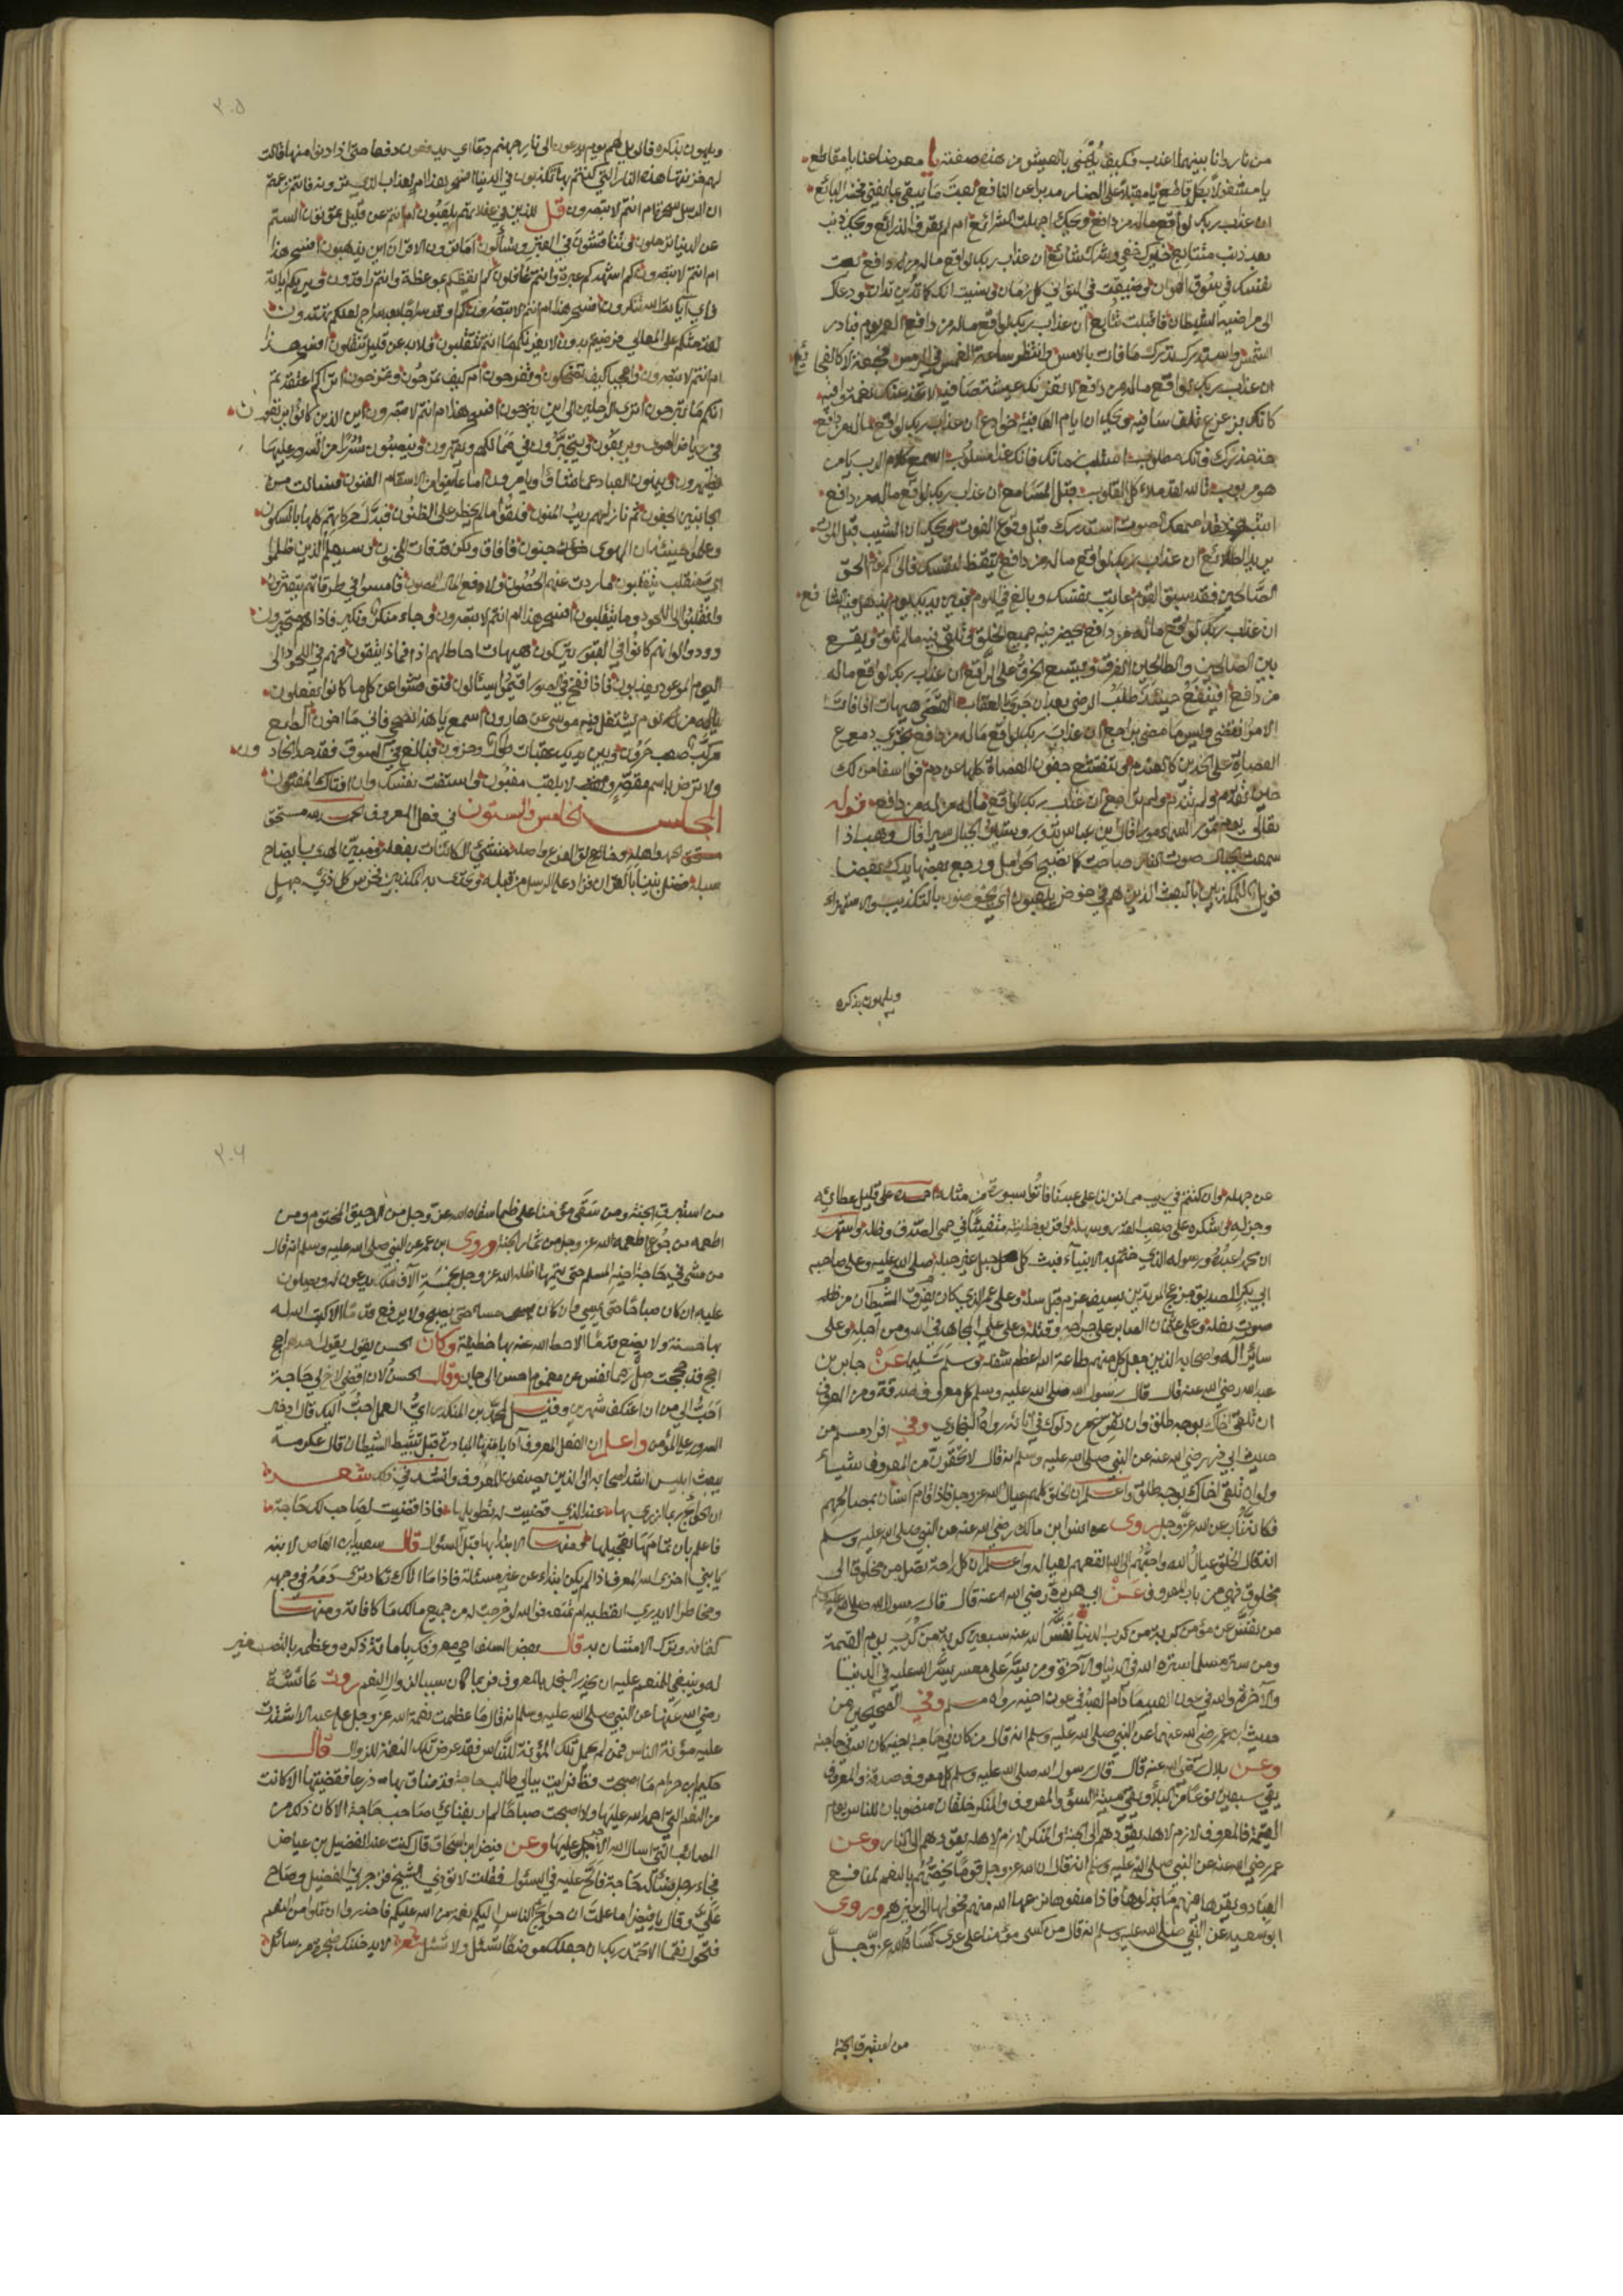 من نار دانا بينهما اعذب فكيف يتهنى بالعيش من هذه صفته يا معرضا عنا يا مقاطع
يا مشغولا بكل قاطع يا مقبلا على الضار مدبرا عن النافع لعبت ما يبقى عما يفنى فخسر البائع
ان عذاب ربك لواقع ماله من دافع ويحك اجهلت الشرائع ام لم تعرف الذرائع ويحك ذنب
بعد ذنب متتابع خفي وشرك شائع ان عذاب ربك لواقع ماله من دافع بعت
نفسك في سوق الهوان وضيعت في التواني كل زمان ونسيت انك كما تدين تدان ودعاك
الى مراضيه الشيطان فاقبلت تتابع ان عذاب ربك لواقع ماله من دافع العمر يوم فبادر
الشمس واستدرك ما فات بالامس وانتظر ساعة الغمس في الرمس
ان عذاب ربك لواقع ماله من دافع لا تغرنك عيشة صافيه
كانك بزعزع خلف سافيه ويحك ان ايام العافية خوادع ان عذاب ربك لواقع ماله من دافع
خذ حذرك فانك مطلوب زمانك فانك غدا مسلوب اسمع كلام الرب يا من
هو مربوب تالله لقد ملاء كل القلوب قبل المسامع ان عذاب ربك لواقع ماله من دافع
استدرك قبل وقوع الفوت ويحك ان الشيب قبل الموت
بريد الطلائع ان عذاب ربك لواقع ماله من دافع تيقظ لنفسك فالى كم
الصالحين فقد سبق القوم عاتب نفسك وبالغ في اللوم فبين يديك يوم يذهل فيه الشافع
ان عذاب ربك لواقع ماله من دافع يحضر فيه جميع الخلق وتلقى فيه مالم تلق ويقع
بين الصالحين والطالحين الفرق ويتسع الخرق على الراقع ان عذاب ربك لواقع ماله
من دافع افينفع حينئذ طلب الرضى بعد ان جرى بالعقاب القضى هيهات الى فات
الامر انقضى وليس ما مضى براجع ان عذاب ربك لواقع ماله من دافع تجري دموع
العصاة على الخدين كالعندم وتنفتح جفون العصاة كلها عن دم فوا اسفا من لك
حين تقدم ولم تندم ولم تراجع ان عذاب ربك لواقع ماله من دافع قوله
تعالى يوم تمور السماء مورا قال ابن عباس تدور وتسير الجبال سيرا قال وهب اذا
سمعت الجبال صوت النار صاحت كما تصيح الحوامل ورجع بعضها يدك بعضا
فويل للمكذبين بالبعث الذين هم في خوض يلعبون اي يخوضون بالتكذيب والاستهزاء
ويلهون بذكره

٣٠٥
ويلهون بذكره فالويل لهم يوم يدعون الى نار جهنم دعا اي يدفعون دفعا حتى اذا دنوا منها قالت
لهم خزنتها هذه النار التي كنتم بها تكذبون في الدنيا افسحر هذا ام العذاب الذي ترونه فانتم زعمتم
ان الرسل سحرة ام انتم لا تبصرون قل للذين في غفلاتهم يلعبون اما انتم عن قليل تموتون الستم
عن الدنيا ترحلون وتفتشون في القبر وتسألون اما ترون الاقران اين يذهبون افسحر هذا
ام انتم لا تبصرون كم اشهدكم عبرة وانتم غافلون كم ايقظكم موعظة وانتم راقدون ويريكم اياته
فاي آيات الله تنكرون افسحر هذا ام انتم لا تبصرون لعلكم تهتدون
لقد حثكم على المعالي فلا يغرنكم ما انتم تتقلبون فلا بد عن قليل تنقلون افسحر هذا
ام انتم لا تبصرون واعجبا كيف تضحكون وتفرحون ام كيف تمرحون وتمزحون اتراكم اعتقدتم
انكم ما تبرحون اترى الراحلين الى اين ينزحون افسحر هذا ام انتم لا تبصرون اين الذين كانوا يرتعون
في رياض الهوى ويتبخترون في ممالكهم ويقهرون وينصبون سررا من السرور عليها
يظهرون الاسقام الفنون فسالت من
الجانبين الجفون ثم نازلهم ريب المنون ولقوا مالم يخطر على الظنون فبدلت حركاتهم كلها بالسكون
وعلموا حينئذ ان الهوى جنون فافاق ولكن وسيعلم الذين ظلموا
اي منقلب ينقلبون فما ردت عنهم الحصون ولا دفع المال المصون فامسوا في طرقاتهم يتعثرون
وانقلبوا الى اللحود وما ينقلبون افسحر هذا ام انتم لا تبصرون وجاء منكر ونكير فاذا هم متحيرون
وودوا لو انهم كانوا في القبور يتركون هيهات احاط لهم اذا فماذا يتقون فهم في اللحود الى
اليوم الموعود يعذبون فاذا نفخ في الصور اقيموا يسئالون فتفتشوا عن كل ما كانوا يفعلون
ياله من يوم يشتغل فيه موسى عن هارون اسمع يا هذا نصحي فاني ما اخون الطبع
مركب صعب حرون وبين يديك عقبات طوال وحزون فبالغ في السوق فقد حد الحادون
ولا ترض باسم مقصر لا بلقب مغبون واستفت نفسك وان افتاك المفتون
المجلس الخامس والستون في فعل المعروف الحمد لله مستحق
الحمد واهله وخالق الفرع واصله منشئ الكائنات بفعله ومبين الهدى بايضاح
سبله فضل نبينا بالقران فزاد على الرسل من قبله وتحدى به المكذبين فخرس كل ذي جهل

عن جهله وان كنتم في ريب مما نزلنا على عبدنا فاتوا بسورة من مثله احمده على قليل عطائه
وجزله واشكره على صعب القدر وسهله واقر بوحدانيته متفيئا في حمى الصدق وظله واشهد
ان محمدا عبده ورسوله الذي ختم به الانبياء فبت كل حبل غير حبله صلى الله عليه وعلى صاحبه
ابي بكر الصديق مزعج المرتدين بسيف عزمه قبل سله وعلى عمر الذي كان يفرق الشيطان من ظله
صوت نعله وعلى عثمان الصابر على جراحه وقتله وعلى علي المجاهد في الله ومن اجله وعلى
سائر اله واصحابه الذين جعل كل منهم طاعة الله اعظم شغله وسلم تسليما عن جابر بن
عبدالله رضي الله عنه قال قال رسول الله صلى الله عليه وسلم كل معروف صدقة ومن المعروف
ان تلقى اخاك بوجه طلق وان تفرغ من دلوك في انائه رواه البخاري وفي افراد مسلم من
حديث ابي ذر رضي الله عنه عن النبي صلى الله عليه وسلم انه قال لا تحقرن من المعروف شيئا
ولو ان تلقى اخاك بوجه طلق واعلم ان الخلق كلهم عيال الله عز وجل فاذا قام انسان بمصالحهم
فكانه ناب عن الله عز وجل روى انس ابن مالك رضي الله عنه عن النبي صلى الله عليه وسلم
انه قال الخلق عيال الله واحبهم الى الله انفعهم لعياله واعلم ان كل راحة تصل من مخلوق الى
مخلوق فهي من باب المعروف عن ابي هريرة رضي الله عنه قال قال رسول الله صلى الله عليه وسلم
من نفس عن مؤمن كربة من كرب الدنيا نفس الله عنه سبعين كربة من كرب يوم القيمة
ومن ستر مسلما ستره الله في الدنيا والآخرة ومن يسر على معسر يسر الله عليه في الدنيا
والآخرة والله في عون العبد ما دام العبد في عون اخيه رواه مسلم وفي الصحيحين من
حديث ابن عمر رضي الله عنهما عن النبي صلى الله عليه وسلم انه قال من كان في حاجة اخيه كان الله في حاجته
وعن بلال رضي الله عنه قال قال رسول الله صلى الله عليه وسلم كل معروف صدقة والمعروف
يقي سبعين نوعا من البلاء ويقي ميتة السوء والمعروف والمنكر خلقان منصوبان للناس يوم
القيمة فالمعروف لازم لاهله يقودهم الى الجنة والمنكر لازم لاهله يقودهم الى النار وعن
عمر رضي الله عنه عن النبي صلى الله عليه وسلم انه قال ان لله عز وجل قوما يخصهم بالنعم لمنافع
العباد ويقرها فيهم ما بذلوها فاذا منعوها نزعها الله منهم فحولها الى غيرهم وروى
ابو سعيد عن النبي صلى الله عليه وسلم انه قال من كسى مؤمنا على عري كساه الله عز وجل
من استبرق الجنة

٣٠٦
من استبرق الجنة ومن سقى مؤمنا على ظما سقاه الله عز وجل من الرحيق المختوم ومن
اطعمه من جوع اطعمه الله عز وجل من ثمار الجنة وروى ابن عمر عن النبي صلى الله عليه وسلم انه قال
من مشى في حاجة اخيه المسلم حتى يتمها اظله الله عز وجل بخمسة آلاف ملك يدعون له ويصلون
عليه ان كان صباحا حتى يمسي وان كان مساء حتى يصبح ولا يرفع قدما الا كتب الله له
بها حسنة ولا يضع قدما الا حط الله عنه بها خطيئة وكان الحسن يقول يقول احدهم احج
احج قد حججت صل رحما نفس عن مغموم احسن الى جار وقال الحسن لان اقضي لاخ لي حاجة
احب الي من ان اعتكف شهرين وقيل لمحمد بن المنكدر اي العمل احب اليك قال ادخال
السرور على المؤمن واعلم ان لفعل المعروف آدابا منها المبادرة قبل تثبيط الشيطان قال عكرمة
يبعث ابليس اشد اصحابه الى الذين يصنعون المعروف وانشد في ذلك شعر
ان الحوائج ربما ازرى بها عند الذي قضيت له تطويلها فاذا قضيت لصاحب لك حاجة
فاعلم بان تمامها تعجيلها ومنها الابتداء بها قبل السؤال قال سعيد ابن العاص لابنه
يا بني اخزى الله المعروف اذا لم يكن ابتداء عن غير مسئلة فاذا ما اتاك تكاد ترى دمه في وجهه
ومخاطرا لا يدري اتعطيه ام تمنعه فوالله لو خرجت له من جميع مالك ما كافاته ومنها
كتمانه وترك الامتنان به قال بعض السلف احي معروفك باماتة ذكره وعظمه بالتصغير
له وينبغي للمنعم عليه ان يحذر البخل بالمعروف فربما كان سببا لزوال النعم روت عائشة
رضي الله عنها عن النبي صلى الله عليه وسلم انه قال ما عظمت نعمة الله عز وجل على عبد الا اشتدت
عليه مؤنة الناس فمن لم يحمل تلك المؤنة للناس فقد عرض تلك النعمة للزوال قال
حكيم ابن حزام ما اصبحت قط فرايت ببابي طالب حاجة قد ضاق بها ذرعا فقضيتها الا كانت
من النعم التي احمد الله عليها ولا اصبحت صباحا لم ار بفنائي صاحب حاجة الا كان ذلك من
المصائب التي اسال الله الاجر عليها وعن فيض ابن اسحاق قال كنت عند الفضيل بن عياض
فجاء رجل فساله حاجة فالح عليه في السؤال فقلت لا توذي الشيخ فزجرني الفضيل وصاح
علي وقال يا فيض اما علمت ان حوائج الناس اليكم نعمة من الله عليكم فاحذروا ان تملوا من النعم
فتحول نقما الا تحمد ربك ان جعلك موضعا تسئل ولا تسئل شعر لا يدخلنك ضجرة من سائل